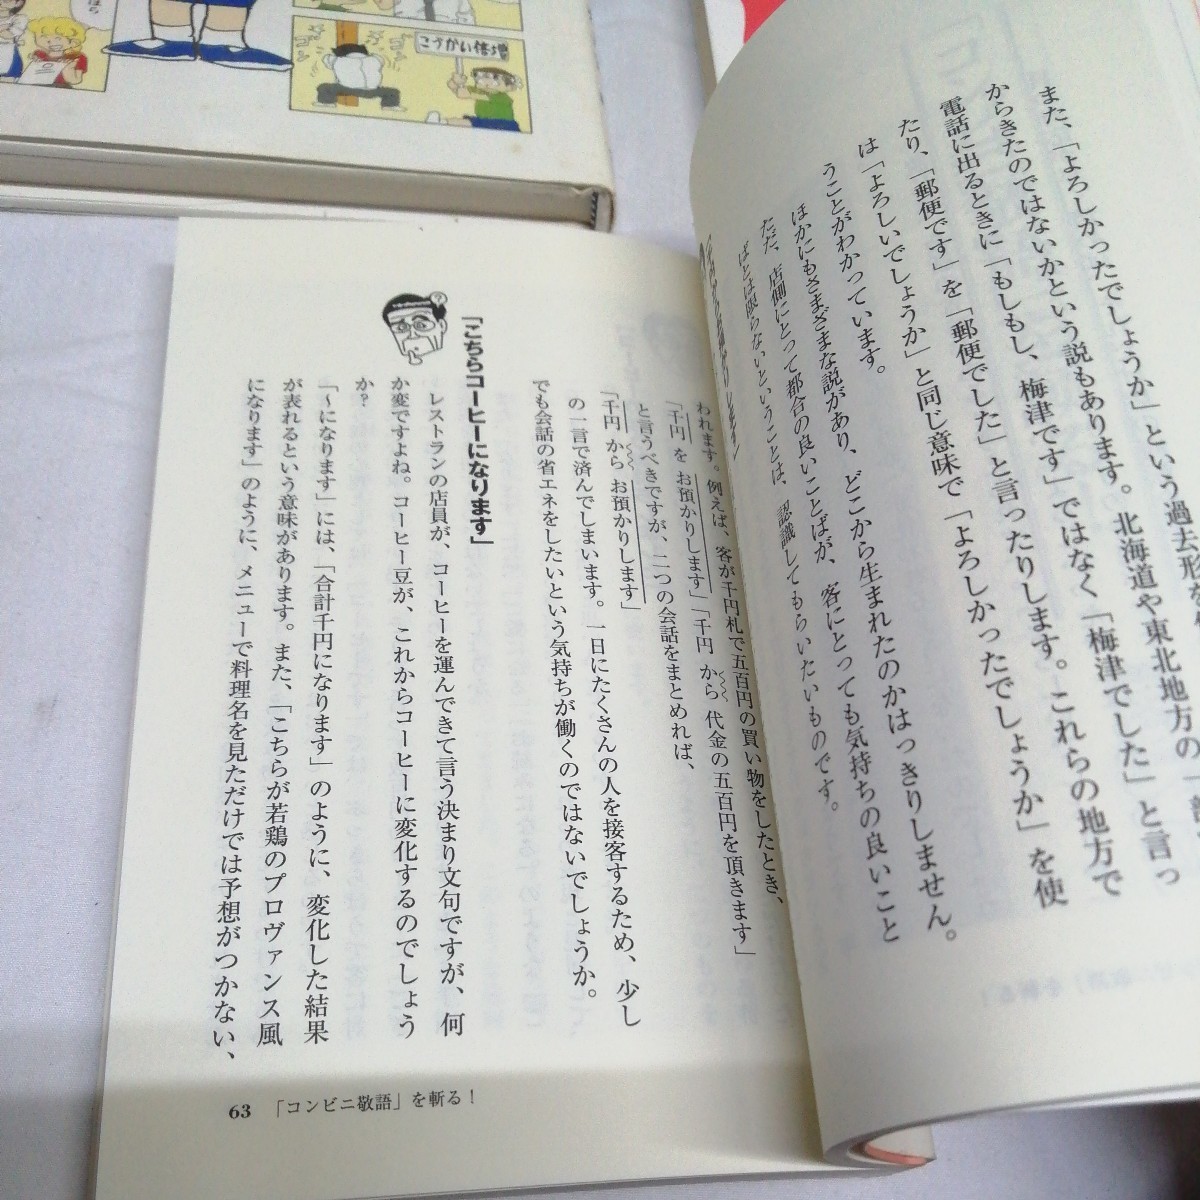 また、「よろしかったでしょうか」という過去形を使
からきたのではないかという説もあります。北海道や東北地方の一部
電話に出るときに「もしもし、梅津です」ではなく「梅津でした」と言っ
たり、「郵便です」を「郵便でした」と言ったりします。これらの地方で
は「よろしいでしょうか」と同じ意味で「よろしかったでしょうか」を使
うことがわかっています。
ほかにもさまざまな説があり、どこから生まれたのかはっきりしません。
ただ、店側にとって都合の良いことばが、客にとっても気持ちの良いこと
ばとは限らないということは、認識してもらいたいものです。
われます。例えば、客が千円札で五百円の買い物をしたとき、
「千円 を お預かりします」「千円 から 代金の五百円を頂きます」
と言うべきですが、二つの会話をまとめれば、
「千円 から お預かりします」
の一言で済んでしまいます。一日にたくさんの人を接客するため、少し
でも会話の省エネをしたいという気持ちが働くのではないでしょうか。
「こちらコーヒーになります」
レストランの店員が、コーヒーを運んできて言う決まり文句ですが、何
か変ですよね。コーヒー豆が、これからコーヒーに変化するのでしょう
か？
「〜になります」には、「合計千円になります」のように、変化した結果
が表れるという意味があります。また、「こちらが若鶏のプロヴァンス風
になります」のように、メニューで料理名を見ただけでは予想がつかない、
63 「コンビニ敬語」を斬る！
こうかい倍増